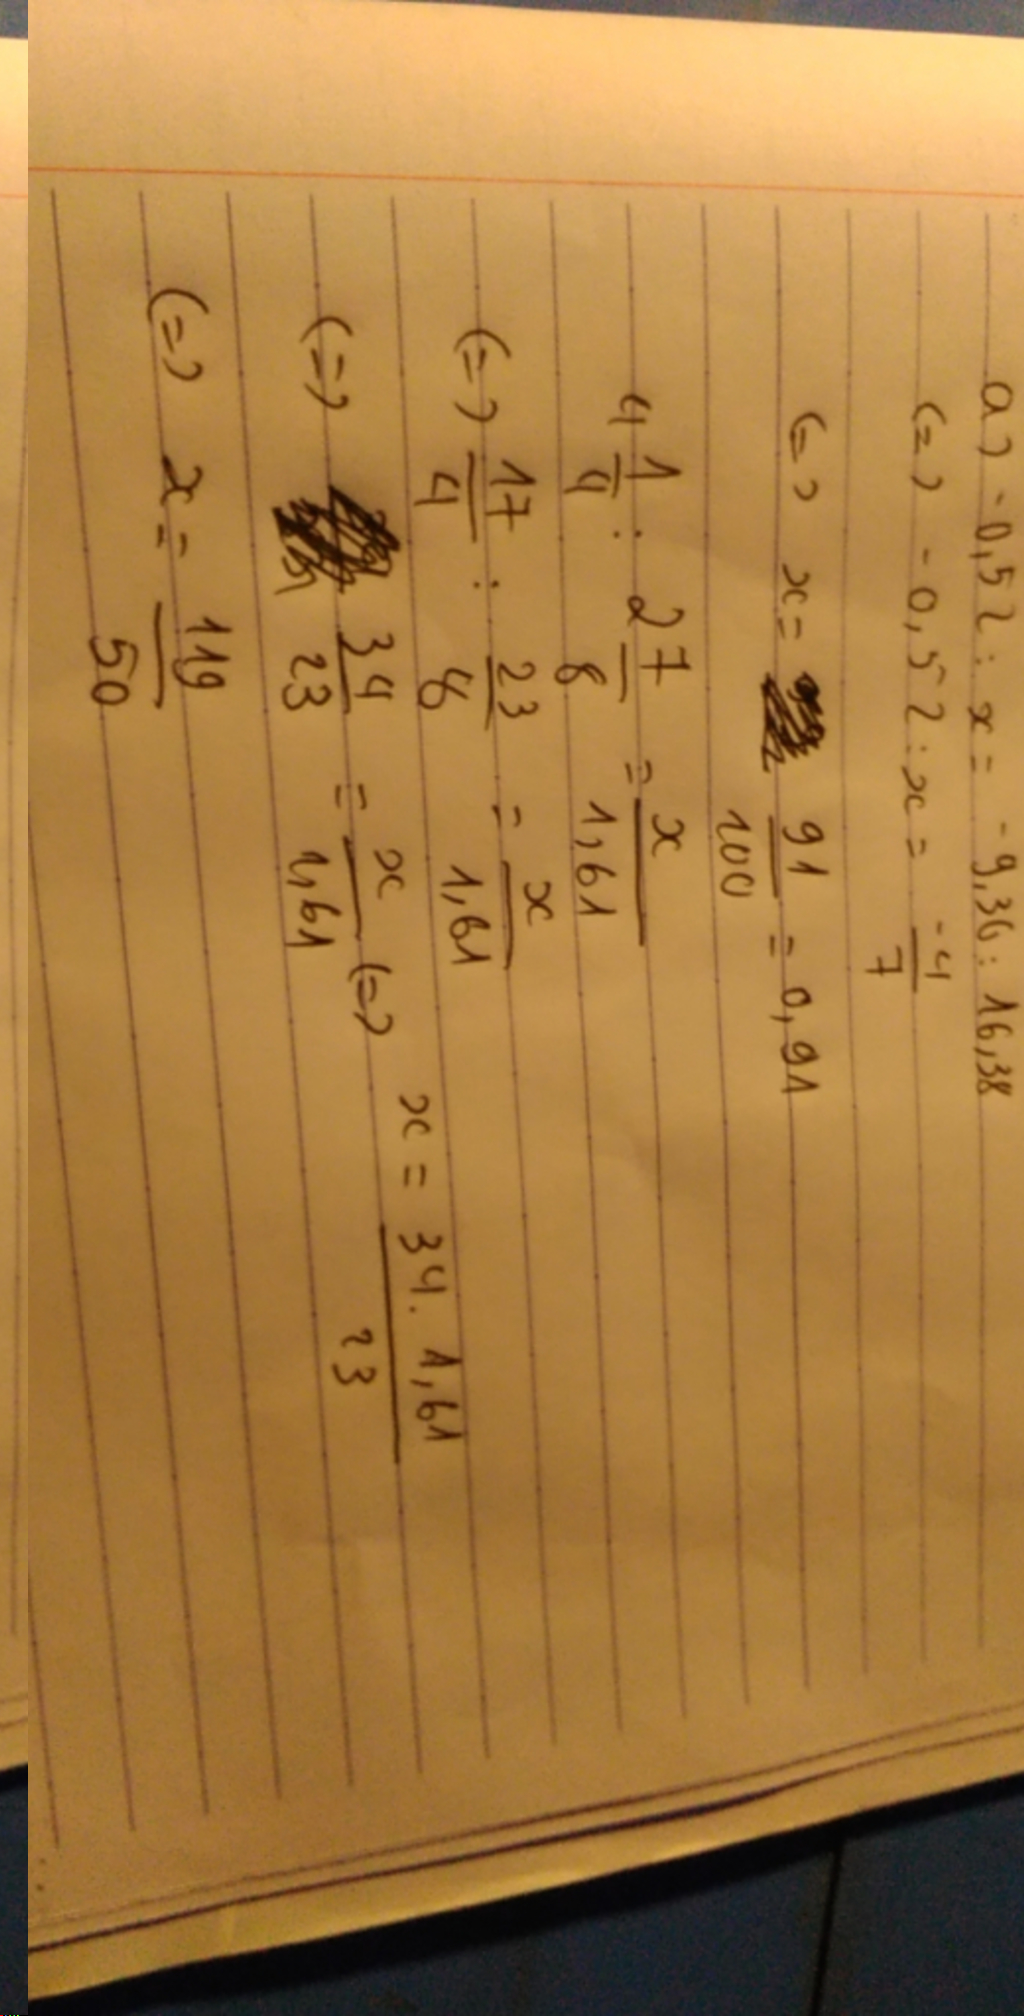 a) -0,52 : x = -9,36 : 16,38
(=) -0,52 : x = -4/7
(=) x = 91/100 = 0,91
4 1/4 : 2 7/8 = x/1,61
(=) 17/4 : 23/8 = x/1,61
(=) 34/23 = x/1,61 (=) x = 34. 1,61/23
(=) x = 119/50